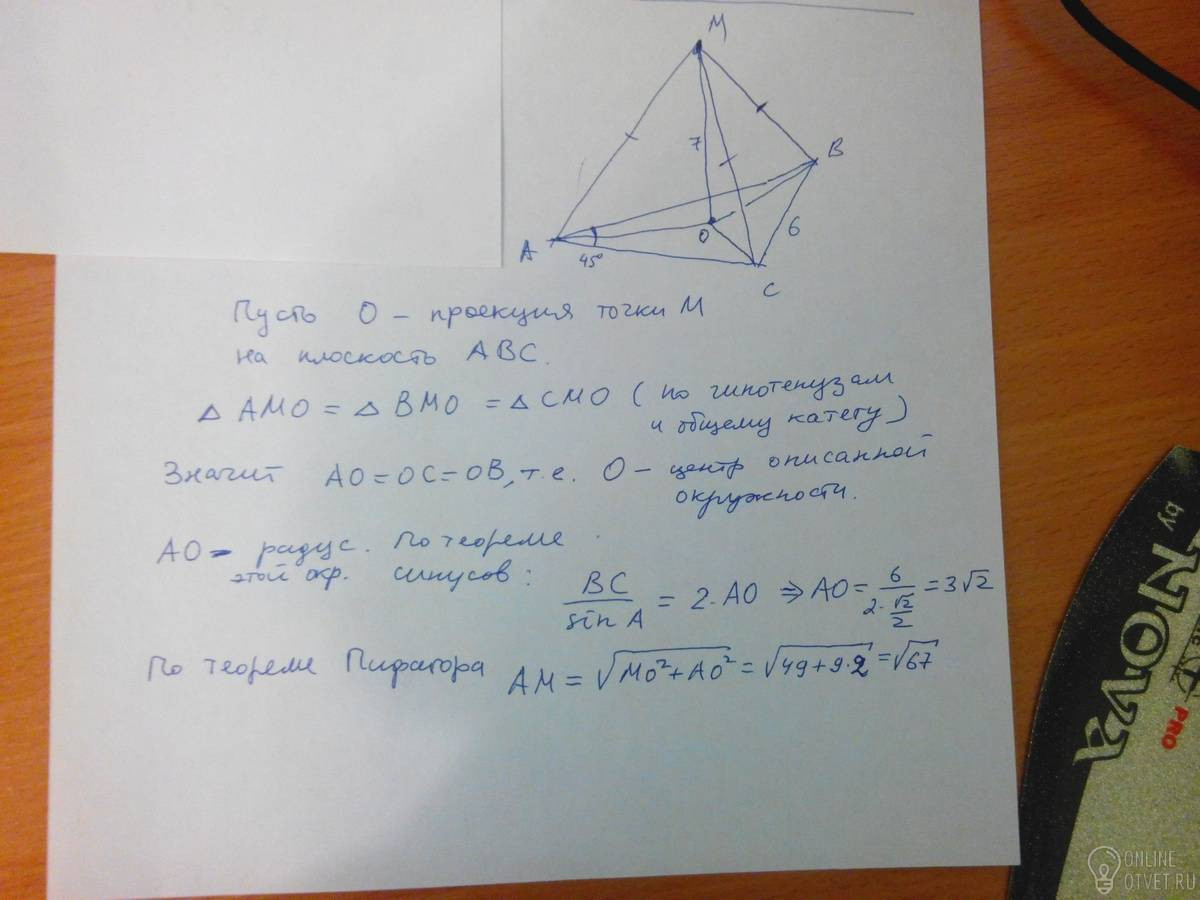 M
7
B
A
O
6
45°
C
Пусть O – проекция точки M
на плоскость ABC.
△ AMO = △ BMO = △ CMO (по гипотенузам
и общему катету)
Значит AO = OC = OB, т.е. O – центр описанной
окружности.
AO – радус. По теореме
этой окр. синусов:
BC/sin A = 2·AO ⇒ AO = 6/(2·√2/2) = 3√2
По теореме Пифагора AM = √(MO²+AO²) = √(49+9·2) = √67
by NOVA
PRO
ONLINE
OTVET.RU